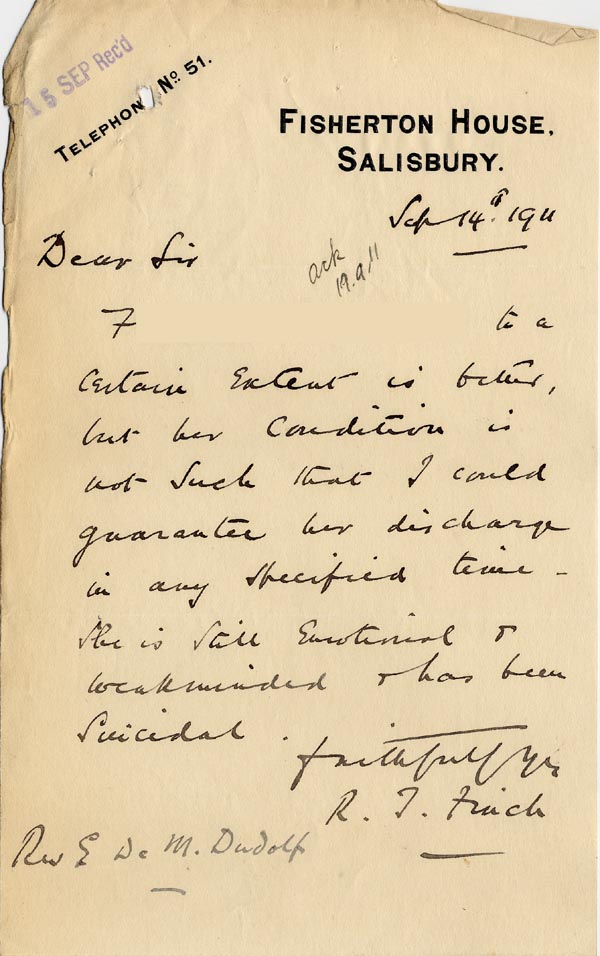 15 SEP Rec'd
TELEPHON Nº 51.
FISHERTON HOUSE,
SALISBURY.
Sep 14th. 1911
ack
19.9.11
Dear Sir
F to a
Certain Extent is better,
but her Condition is
not Such that I could
guarantee her discharge
in any specified time -
She is Still Emotional &
weakminded & has been
Suicidal.
faithfully yrs
R. T. Finch
Rev E De M. Rudolf